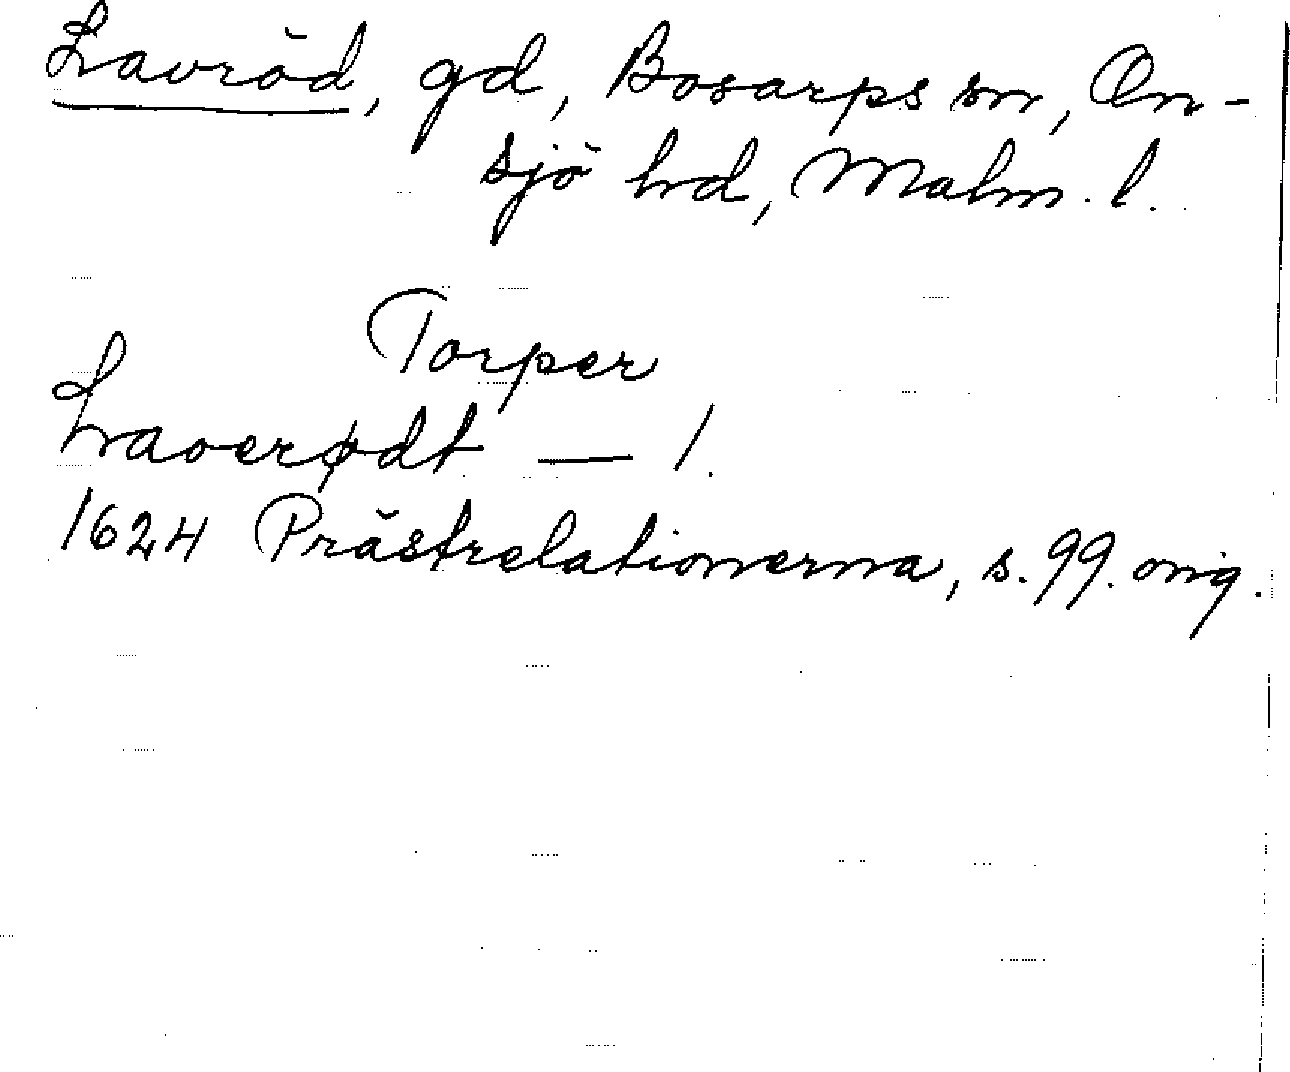 Lavröd, gd, Bosarps sn, On-
sjö hd, Malm. l.
Torper
Laverødt — 1.
1624 Prästrelationerna, s. 99. orig.